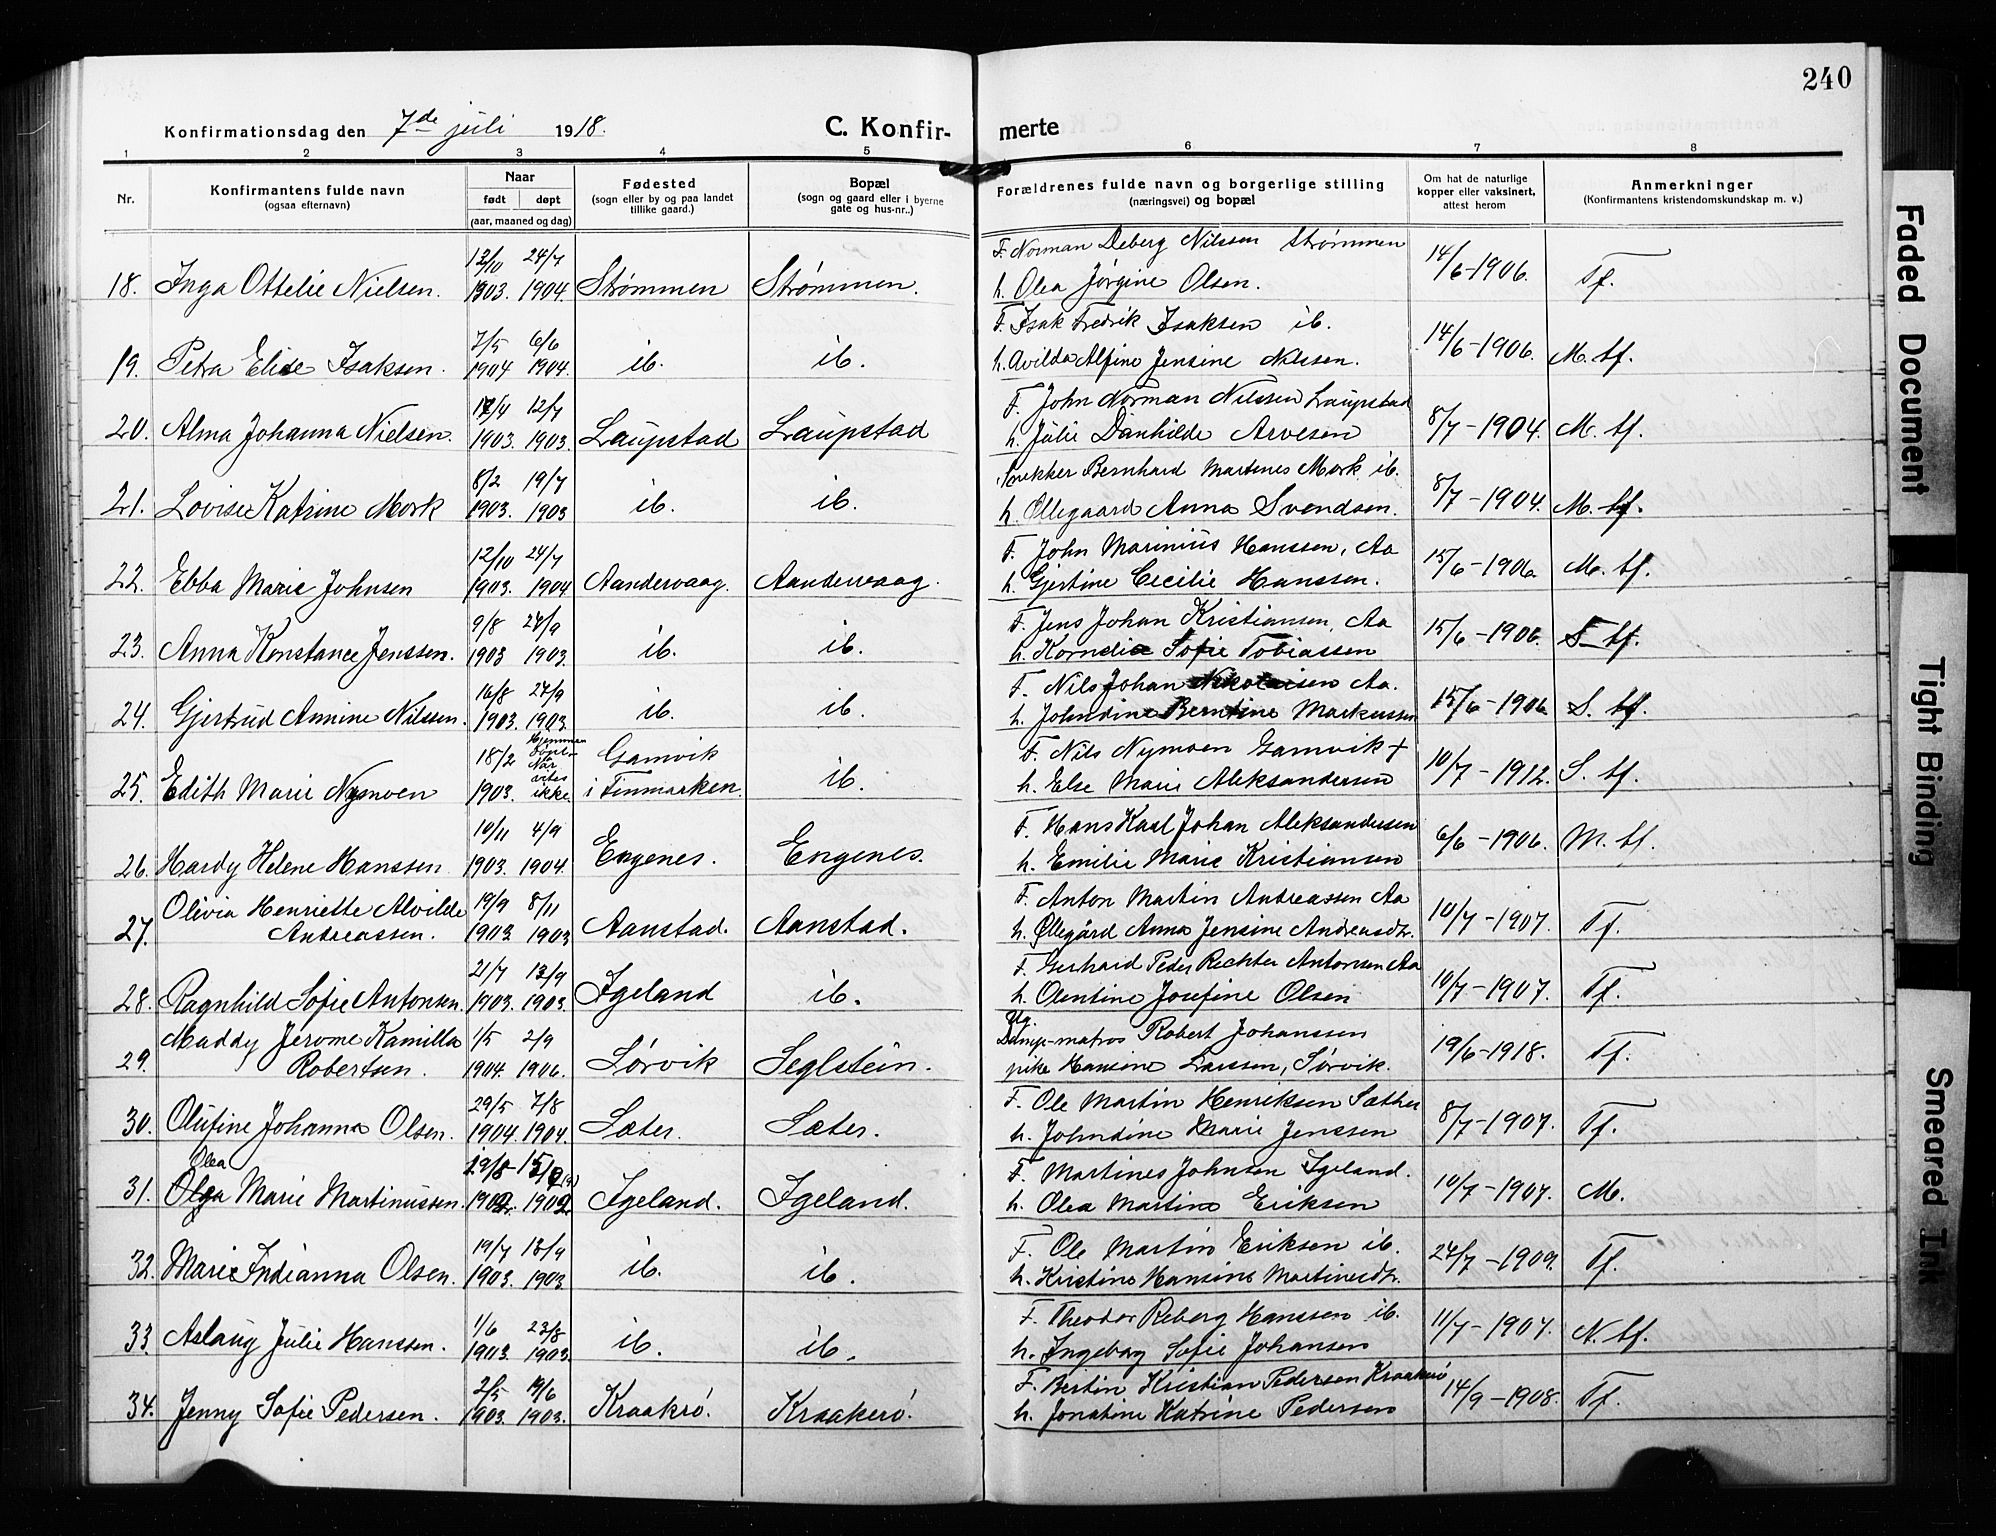 240
Konfirmationsdag den 7de juli 1918.
C. Konfir-
merte
1 2 3 4 5 6 7 8
Nr.
Konfirmantens fulde navn
(ogsaa efternavn)
Naar
født døpt
(aar, maaned og dag)
Fødested
(sogn eller by og paa landet
tillike gaard.)
Bopæl
(sogn og gaard eller i byerne
gate og hus-nr..)
Forældrenes fulde navn og borgerlige stilling
(næringsvei) og bopæl
Om hat de naturlige
kopper eller vaksinert,
attest herom
Anmerkninger
(Konfirmantens kristendomskundskap m. v.)
12/10 24/7 F. Norman Deberg Nilssen Strømmen
18. Inga Ottelie Nielsen. 1903. 1904. Strømmen Strømmen. h. Olea Jørgine Olsen. 14/6-1906. Tf.
7/5 6/6 F. Isak Fredrik Isaksen ib.
19. Petra Elise Isaksen. 1904 1904. ib. ib. h. Avilda Alfine Jensine Nilssen. 14/6-1906. M. tf.
17/4 12/7 F. John Norman Nilssen Laupstad
20. Alma Johanna Nielsen. 1903. 1903. Laupstad Laupstad h. Julie Danhilde Arvesen 8/7-1904. M. tf.
8/2 19/7 Snekker Bernhard Martenes Mork ib.
21. Lovise Katrine Mork 1903. 1903 ib. ib. h. Ollegaard Anna Svendsen. 8/7-1904. M. tf.
12/10 24/7 F. John Marinius Hanssen, Aa
22. Ebba Marie Johnsen 1903. 1904 Aandervaag. Aandervaag. h. Gjertine Cecilie Hanssen. 15/6-1906. M. tf.
9/8 24/9 F. Jens Johan Kristiansen, Aa
23. Anna Konstance Jenssen. 1903 1903. ib. ib. h. Kornelia Sofie Tobiassen 15/6-1906. S. tf.
16/8 24/9 F. Nils Johan Nikolaisen Aa.
24. Gjertrud Annine Nilssen. 1903. 1903. ib. ib. h. Johndine Berntine Markussen 15/6-1906. S. tf.
18/2 Hjemmedøpt Når vites ikke. Gamvik F. Nils Nymoen Gamvik +
25. Edith Marie Nymoen 1903. i Finmarken. ib. h. Else Marie Aleksandersen 10/7-1912. S. tf.
10/11 4/9 F. Hans Karl Johan Aleksandersen
26. Hardy Helene Hanssen 1903. 1904. Engenes. Engenes. h. Emilie Marie Kristiansen 6/6-1906. M. tf.
Olivia Henriette Alvilde 19/9 8/11 F. Anton Martin Andreassen Aa
27. Andreassen. 1903 1903 Aanstad. Aanstad. h. Øllegård Anna Jensine Andreasdtr. 10/7-1907. Tf.
21/7 13/9 F. Gerhard Peder Rechter Antonsen Aa
28. Ragnhild Sofie Antonsen. 1903. 1903. Igeland ib. h. Olentine Josefine Olsen 10/7-1907. Tf.
Maddy Jerome Kamilla 1/5 2/9 Ug. Damp-matros Robert Johanssen
29. Robertsen. 1904. 1906. Sørvik Seglstein. pike Hansine Larssen, Sørvik. 19/6-1918. Tf.
29/5 7/8 F. Ole Martin Henriksen Sæther
30. Olufine Johanna Olsen. 1904. 1904. Sæter. Sæter. h. Johndine Marie Jenssen 8/7-1907. Tf.
Olea 29/8 F. Martines Johnsen Igeland.
31. Olga Marie Martinussen. 1902. 1902 Igeland. Igeland. h. Olea Martina Eriksen 10/7-1907. M.
19/7 13/9 F. Ole Martin Eriksen ib.
32. Marie Indianna Olsen. 1903. 1903. ib. ib. h. Kristine Hansine Martinesdtr. 24/7-1909. Tf.
1/6 23/8 F. Theodor Reberg Hanssen ib.
33. Aslaug Julie Hanssen. 1903. 1903. ib. ib. h. Ingeborg Sofie Johansen 11/7-1907. N. tf.
2/5 19/6 F. Bertin Kristian Pedersen Kraakrø
34. Jenny Sofie Pedersen. 1903. 1903. Kraakrø. Kraakerø. h. Jonatine Katrine Pedersen 14/9-1908. Tf.
Faded Document
Tight Binding
Smeared Ink